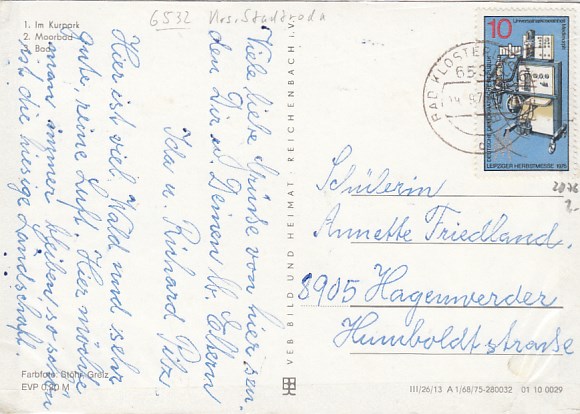 6532 Krs. Stadtroda
1. Im Kurpark
2. Moorbad
Bad
Viele liebe Grüße von hier sen-
den Dir u. Deinen lb. Eltern
Ida u. Richard Pilz.
Hier ist viel Wald und sehr
gute, reine Luft. Hier möchte
man immer bleiben so schön
ist die hiesige Landschaft.
Farbfoto: Stöhr, Greiz
EVP 0,20 M
VEB BILD UND HEIMAT REICHENBACH I. V.
10
LEIPZIGER HERBSTMESSE 1975
BAD KLOSTER
2076
2.-
Schülerin
Annette Friedland.
8905 Hagenwerder
Humboldtstraße
III/26/13 A 1/68/75-280032 01 10 0029